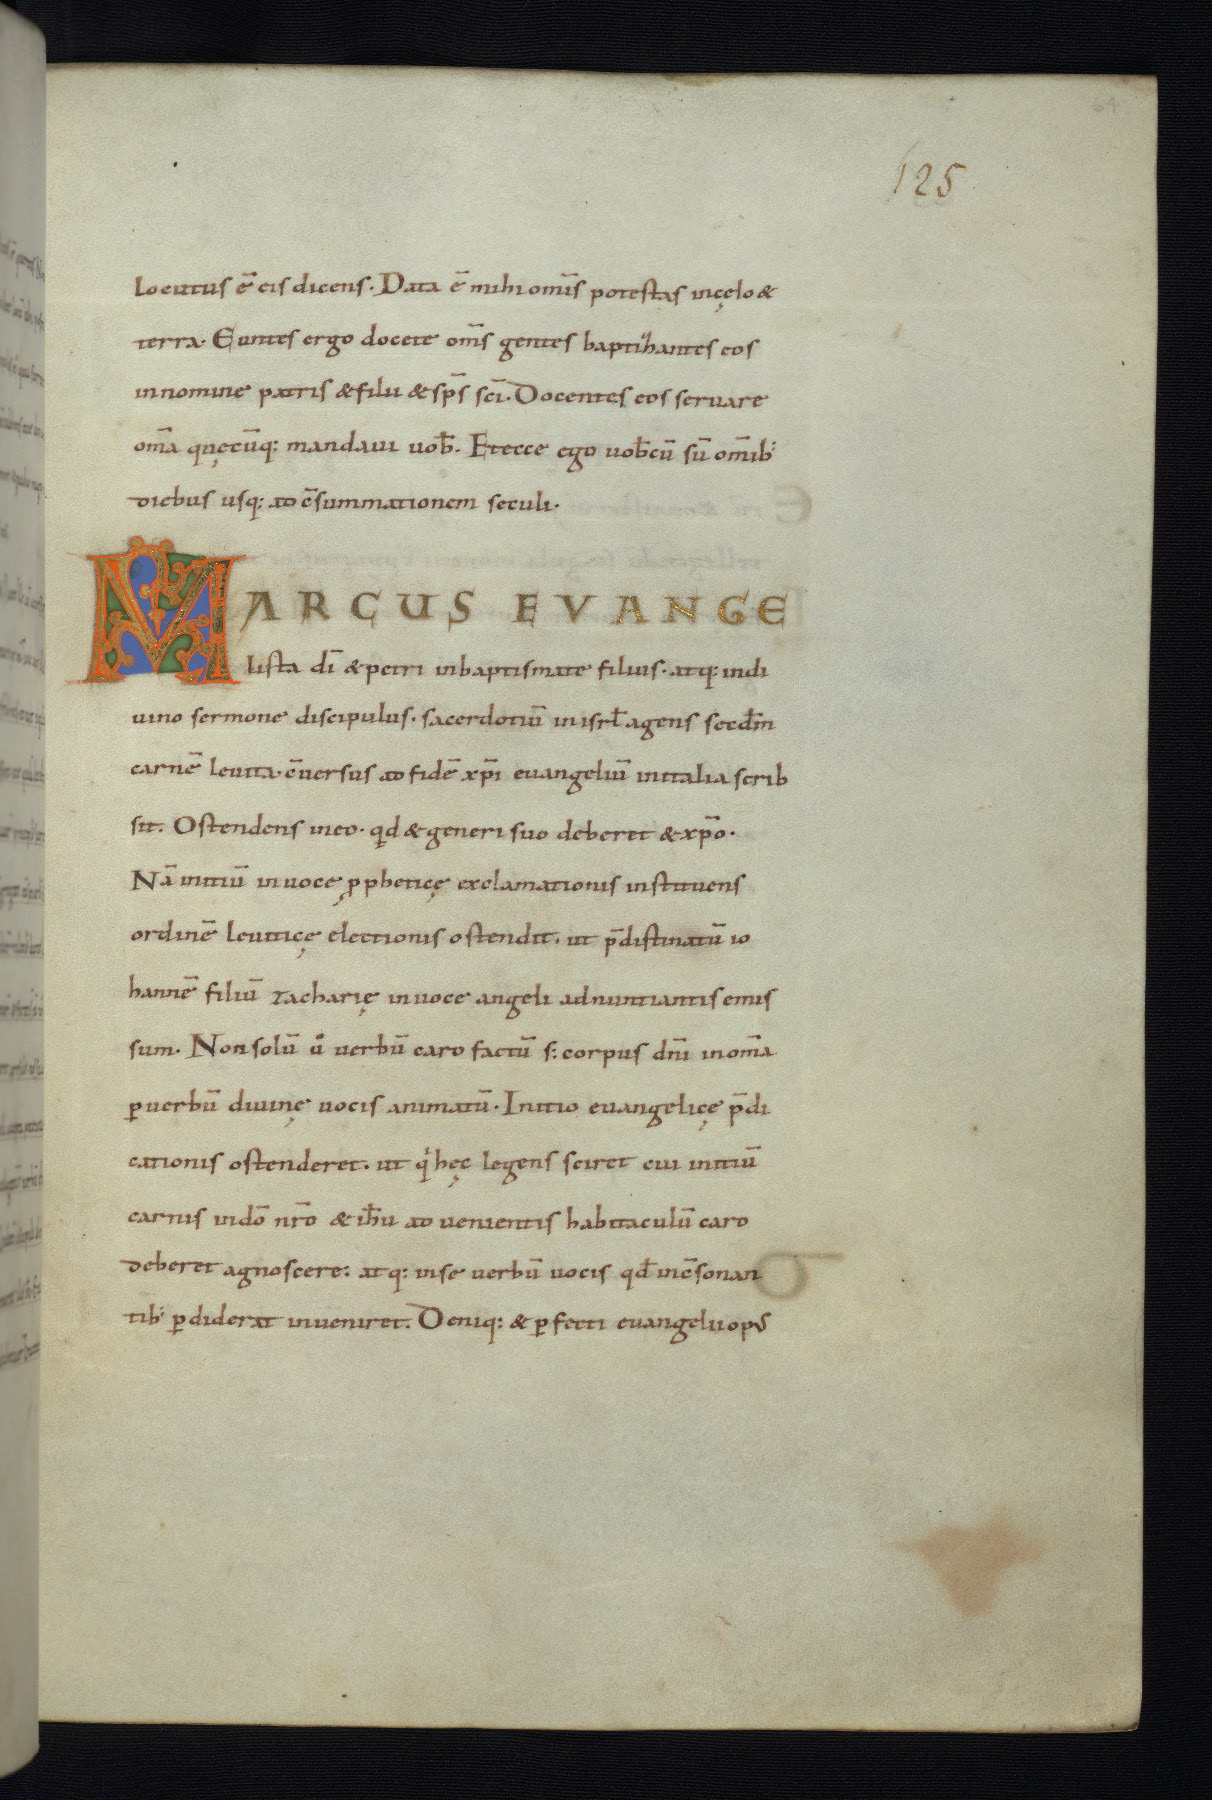 64
125
locutus ē eis dicens. Data ē mihi om̄is potestas in cęlo &
terra. Euntes ergo docete om̄s gentes baptizantes eos
in nomine patris & filii & sp̄s sc̄i. Docentes eos servare
om̄a quęcūq; mandavi vob̄. Et ecce ego vob̄cū sū om̄ib;
diebus usq; ad c̄summationem seculi.
MARCUS EVANGE
lista dī & petri in baptismate filius. atq; in di
uino sermone discipulus. sacerdotiū in isrl̄ agens secd̄m
carnē levita. c̄versus ad fidē xp̄i evangeliū in italia scrib
sit. Ostendens in eo. qd̄ & generi suo deberet & xp̄o.
Nā initiū in voce p̱pheticę exclamationis instituens
ordinē leviticę electionis ostendit. ut p̄distinatū io
hannē filiū zacharię in voce angeli adnuntiantis emis
sum. Non solū u̇ verbū caro factū s; corpus dn̄i in om̄a
ꝑ verbū divinę vocis animatū. Initio evangelicę p̄di
cationis ostenderet. ut qͥ hęc legens sciret cui initiū
carnis in dō nr̄o & ih̄u ad venientis habitaculū caro
deberet agnoscere: atq; in se verbū vocis qd̄ in c̄sonan
tib; ꝑdiderat inveniret. Deniq; & ꝑfecti evangelii opus